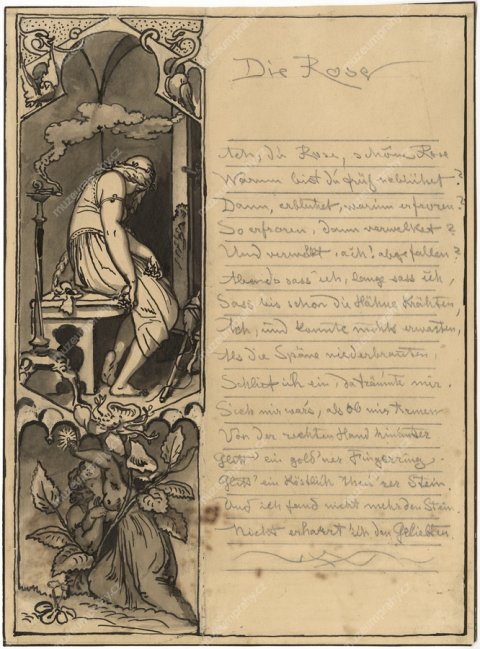 Die Rose
Ach, du Rose, schöne Rose
Warum bist du früh erblühet?
Dann, erblühet, warum erfroren?
So erfroren, dann verwelket?
Und verwelkt, ach! abgefallen?
Abends sass ich, lange sass ich,
Sass bis schon die Hähne krähten,
Ach, und konnte nichts erwarten,
Als die Späne niederbrannten,
Schlief ich ein, da träumte mir.
Sieh mir war's, als ob mir Armen
Von der rechten Hand hinunter
Glitt' ein gold'ner Fingerring.
Glitt' ein köstlich theu'rer Stein.
Und ich fand nicht mehr den Stein.
Nicht erharrt' ich den Geliebten.